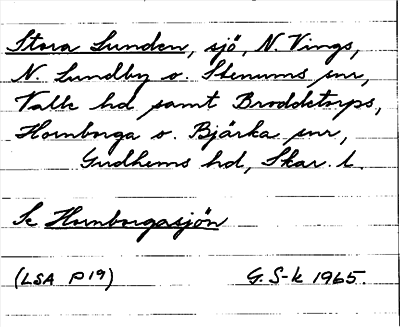 Stora Lunden, sjö, N. Vings,
N. Lundby o. Stenums snr,
Valle hd samt Broddetorps,
Hornborga o. Bjärka snr,
Gudhems hd, Skar. l.
Se Hornborgasjön
(LSA P19) G. S-k 1965.